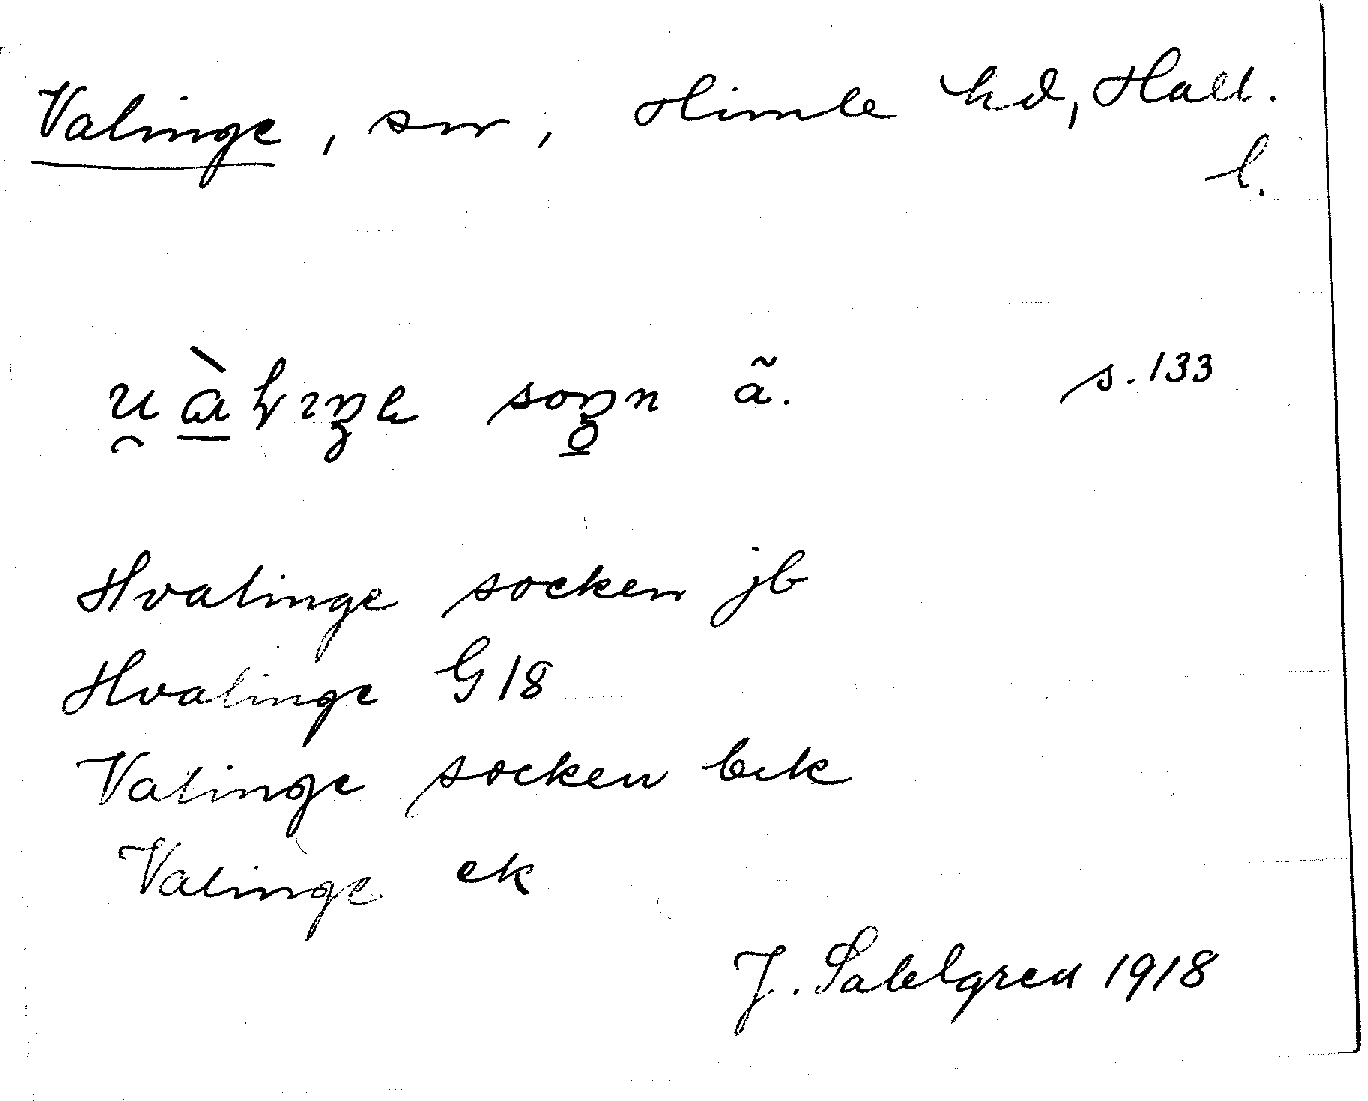 Valinge, sn, Himle hd, Hall.
l.
son ã. s. 133
Hvalinge socken jb
Hvalinge G18
Valinge socken bek
Valinge ek
J. Sahlgren 1918